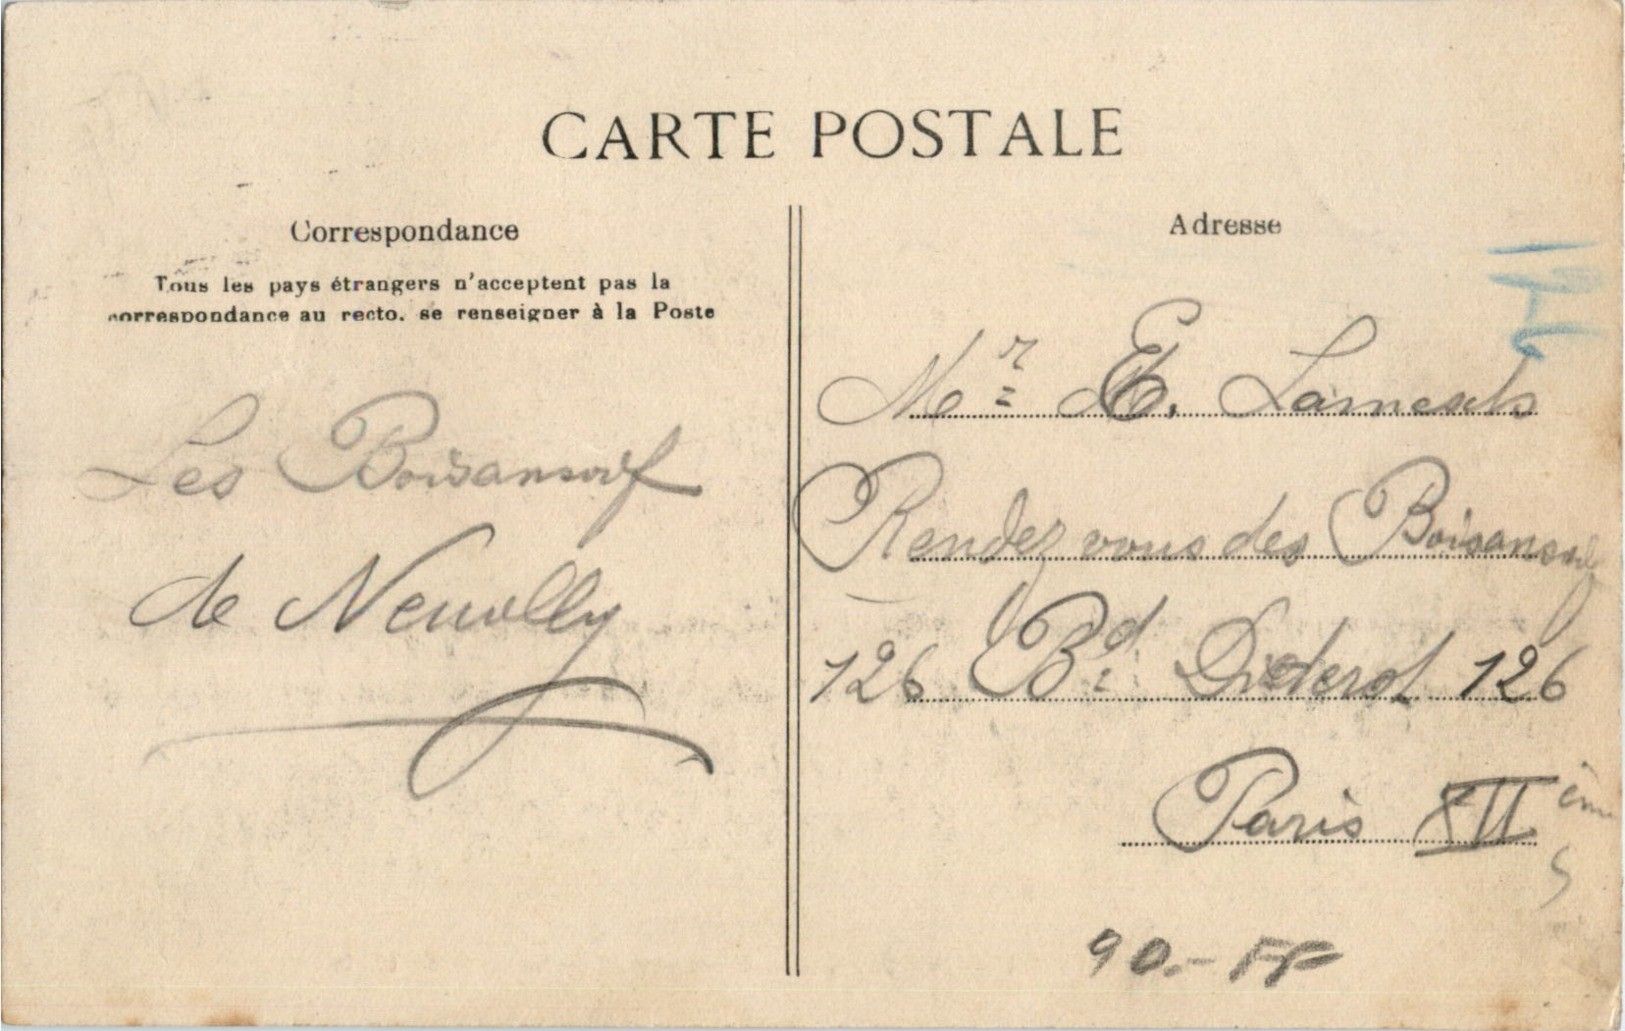 CARTE POSTALE
Correspondance
Tous les pays étrangers n'acceptent pas la
correspondance au recto. se renseigner à la Poste
Les Boisansoif
de Neuilly
Adresse
Mr E.
Rendez vous des Boisansoif
126 Bd Diderot 126
Paris XII ème
90.- FF